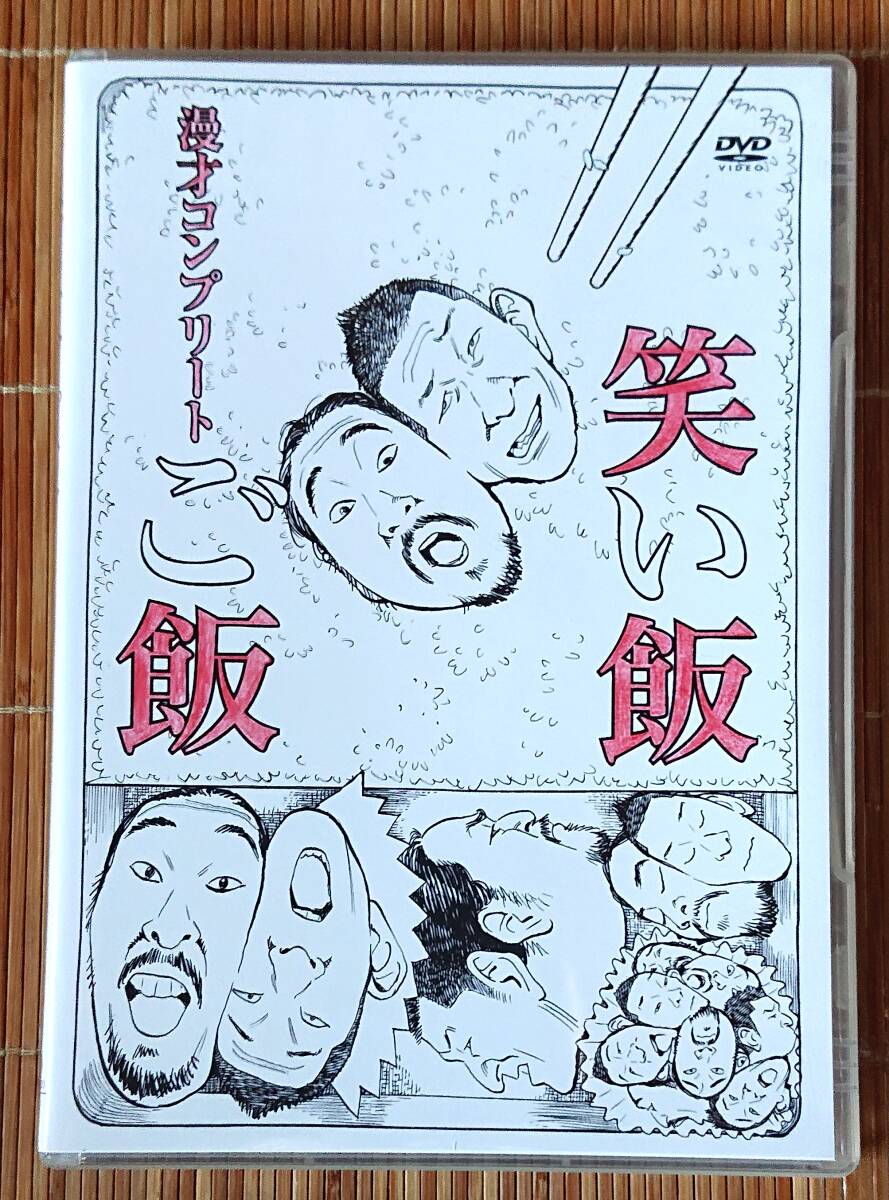 笑い飯
漫才コンプリート
ご飯
DVD
VIDEO